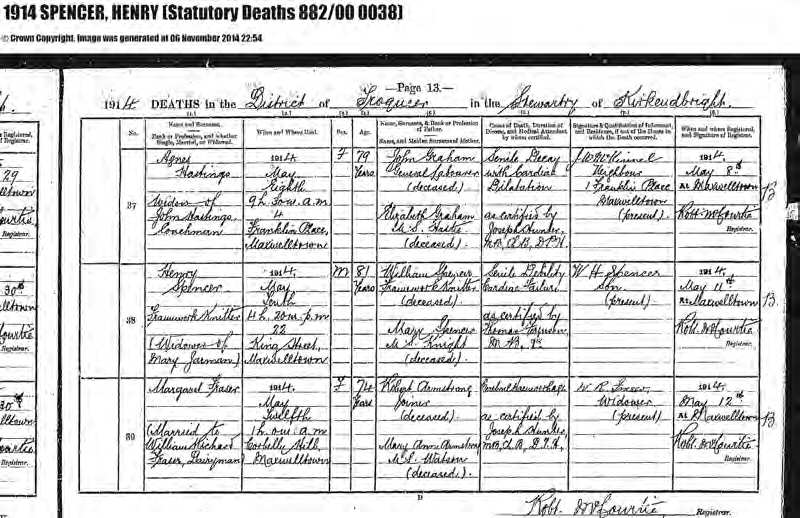 1914 SPENCER, HENRY (Statutory Deaths 882/00 0038)
© Crown Copyright. Image was generated at 06 November 2014 22:54
—Page 13.—
1914 DEATHS in the District of Troqueer in the Stewartry of Kirkcudbright.
No.
Name and Surname.
Rank or Profession, and whether Single, Married, or Widowed.
When and Where Died.
Sex.
Age.
Name, Surname, & Rank or Profession of Father.
Name, and Maiden Surname of Mother.
Cause of Death, Duration of Disease, and Medical Attendant by whom certified.
Signature & Qualification of Informant, and Residence, if out of the House in which the Death occurred.
When and where Registered, and Signature of Registrar.
37
Agnes
Hastings
Widow of
John Hastings,
Coachman
1914,
May
Eighth
9 h. 30 m. a.m.
4
Franklin Place,
Maxwelltown
F
79
Years
John Graham
General Labourer
(deceased)
Elizabeth Graham
M.S.
(deceased)
Senile Decay
with Cardiac
Dilatation
as certified by
Joseph Hunter,
M.B., C.B., D.P.H.
Neighbour
1 Franklin Place
Maxwelltown
(present)
1914,
May 8th
At Maxwelltown
Robt. McCourtie
Registrar.
38
Henry
Spencer
Framework Knitter
(Widower of
Mary Jarman)
1914,
May
Tenth
4 h. 20 m. p.m.
22
King Street,
Maxwelltown
M
81
Years
William Spencer
Framework Knitter
(deceased)
Mary Spencer
M.S. Knight
(deceased)
Senile Debility
Cardiac Failure
as certified by
Thomas
M.B., &c
W. H. Spencer
Son
(present)
1914,
May 11th
At Maxwelltown
Robt. McCourtie
Registrar.
39
Margaret Fraser
(Married to
William Richard
Fraser, Dairyman)
1914,
May
Twelfth
1 h. 0 m. a.m.
Corbelly Hill,
Maxwelltown
F
74
Years
Robert Armstrong
Joiner
(deceased)
Mary Anne Armstrong
M.S. Watson
(deceased)
Cerebral Haemorrhage
as certified by
Joseph Hunter,
M.B., C.B., D.P.H.
W. R. Fraser
Widower
(present)
1914,
May 12th
At Maxwelltown
Robt. McCourtie
Registrar.
D
Robt. McCourtie Registrar.